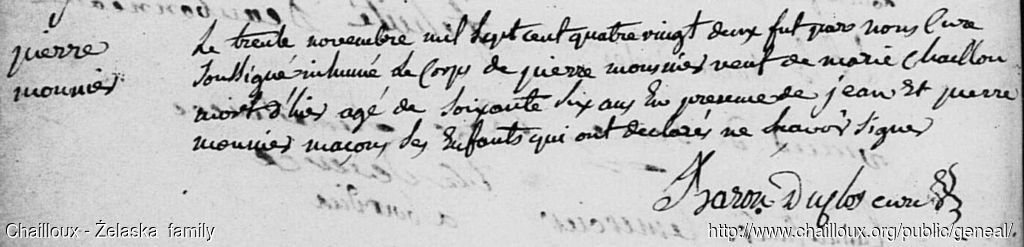 pierre
monnier
Le trente novembre mil Sept cent quatre vingt deux fut par nous Cure
Soussigné inhumé Le Corps de pierre mousnier veuf de marie Chaillou
mort d'hier agé de Soixante Six ans En presence de jean Et pierre
monnier maçons Ses Enfants qui ont declarés ne Scavoir Signer
Baron Duclos curé
Chailloux - Żelaska family
http://www.chailloux.org/public/geneal/